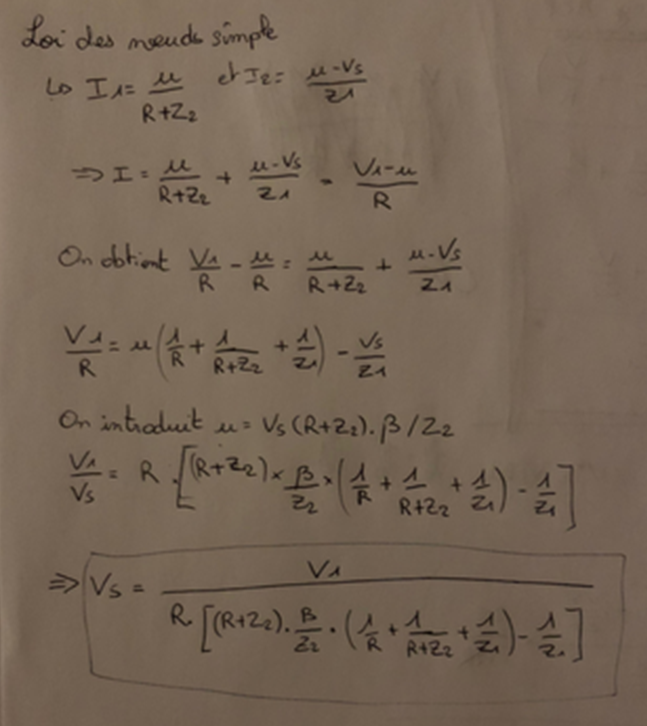 Loi des nœuds simple
↳ I1 = u/(R+Z2) et I2 = (u-Vs)/Z1
⇒ I = u/(R+Z2) + (u-Vs)/Z1 = (V1-u)/R
On obtient V1/R - u/R = u/(R+Z2) + (u-Vs)/Z1
V1/R = u(1/R + 1/(R+Z2) + 1/Z1) - Vs/Z1
On introduit u = Vs(R+Z2).β/Z2
V1/Vs = R.[(R+Z2)×β/Z2×(1/R + 1/(R+Z2) + 1/Z1) - 1/Z1]
⇒ Vs = V1/(R.[(R+Z2).β/Z2.(1/R + 1/(R+Z2) + 1/Z1) - 1/Z1])